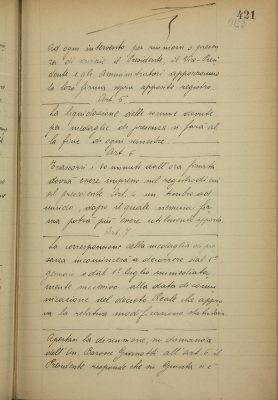 421
Ad ogni intervento per riunioni o presen
za di turno il Presidente, il Vice-Presi
dente e gli Amministratori apporranno
la loro firma sopra apposito registro.
Art. 5
La liquidazione delle somme dovute
per medaglie di presenza si farà al
la fine di ogni semestre.
Art. 6
Trascorsi i 30 minuti dall'ora fissata
dovrà essere impresso sul registro di cui
al precedente Art. 4 un timbro ad
umido, dopo il quale nessuna fir
ma potrà più essere utilmente apposta.
Art. 7
La corresponsione della medaglia di pre
senza incomincierà a decorrere dal 1°
gennaio o dal 1° luglio immediata
mente successivo alla data di comu
nicazione del decreto Reale che appro
va la relativa modificazione statutaria
Apertasi la discussione, su domanda
dell'On. Barone Guanotti all'art. 6 il
Presidente risponde che in Giunta si è